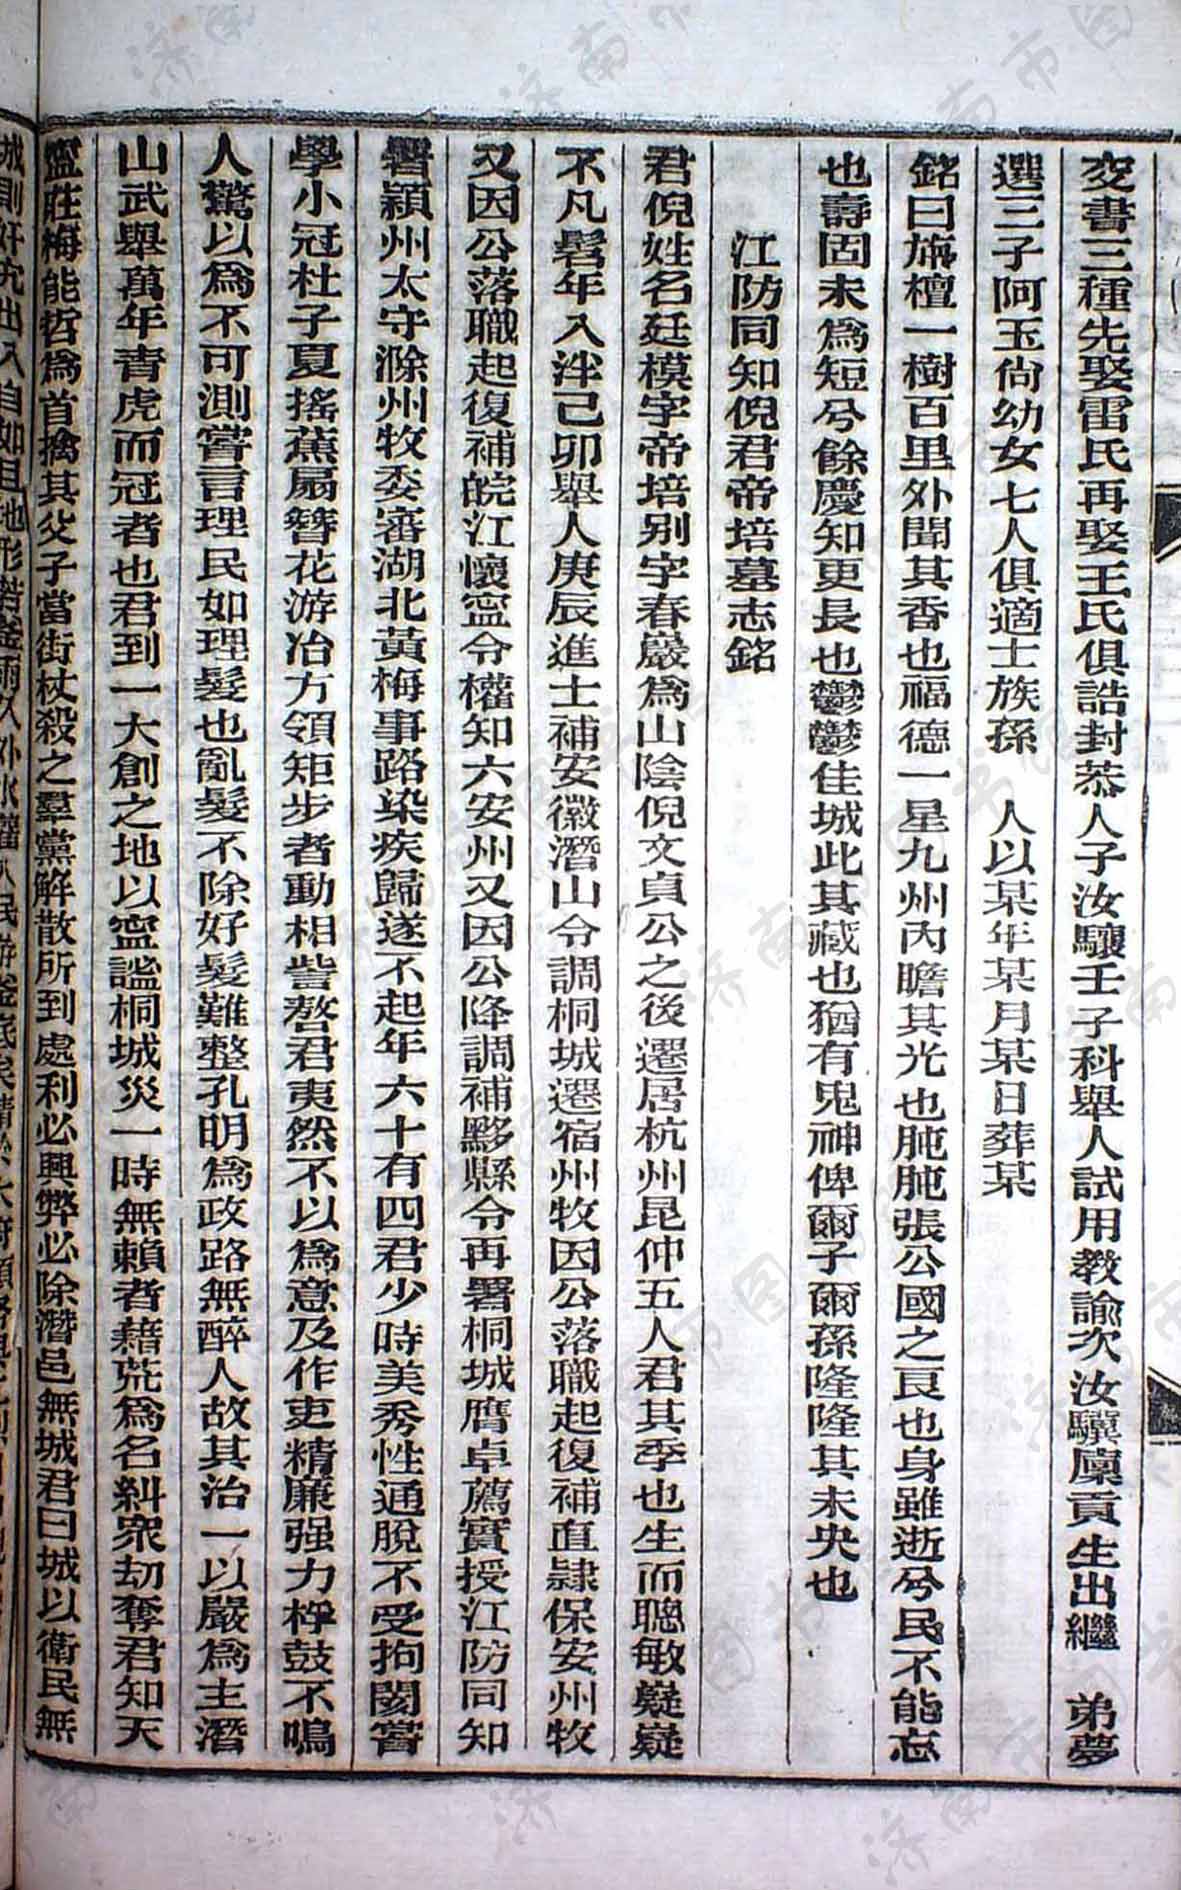 交書三種先娶雷氏再娶王氏俱誥封恭人子汝驤壬子科舉人試用教諭次汝驥廩貢生出繼　弟夢
選三子阿玉尙幼女七人俱適士族孫　人以某年某月某日葬某
銘曰旃檀一樹百里外聞其香也福德一星九州內瞻其光也肫肫張公國之良也身雖逝兮民不能忘
也壽固未爲短兮餘慶知更長也鬱鬱佳城此其藏也猶有鬼神俾爾子爾孫隆隆其未央也
江防同知倪君帝培墓志銘
君倪姓名廷模字帝培别字春巖爲山陰倪文貞公之後遷居杭州昆仲五人君其季也生而聰敏嶷嶷
不凡髫年入泮己卯舉人庚辰進士補安徽潛山令調桐城遷宿州牧因公落職起復補直隷保安州牧
又因公落職起復補皖江懷寍令權知六安州又因公降調補黟縣令再署桐城膺卓薦實授江防同知
署潁州太守滁州牧委審湖北黃梅事路染疾歸遂不起年六十有四君少時美秀性通脫不受拘閡嘗
學小冠杜子夏搖蕉扇簪花游冶方領矩步者動相訾謷君夷然不以爲意及作吏精廉强力桴鼓不鳴
人驚以爲不可測嘗言理民如理髮也亂髮不除好髮難整孔明爲政路無醉人故其治一以嚴爲主潛
山武舉萬年青虎而冠者也君到一大創之地以寍謐桐城災一時無賴者藉荒爲名糾衆劫奪君知天
寍莊梅能哲爲首擒其父子當街杖殺之羣黨解散所到處利必興弊必除潛邑無城君曰城以衛民無
城則奸宄出入自如且地形若釜雨久外水灌入民游釜底矣